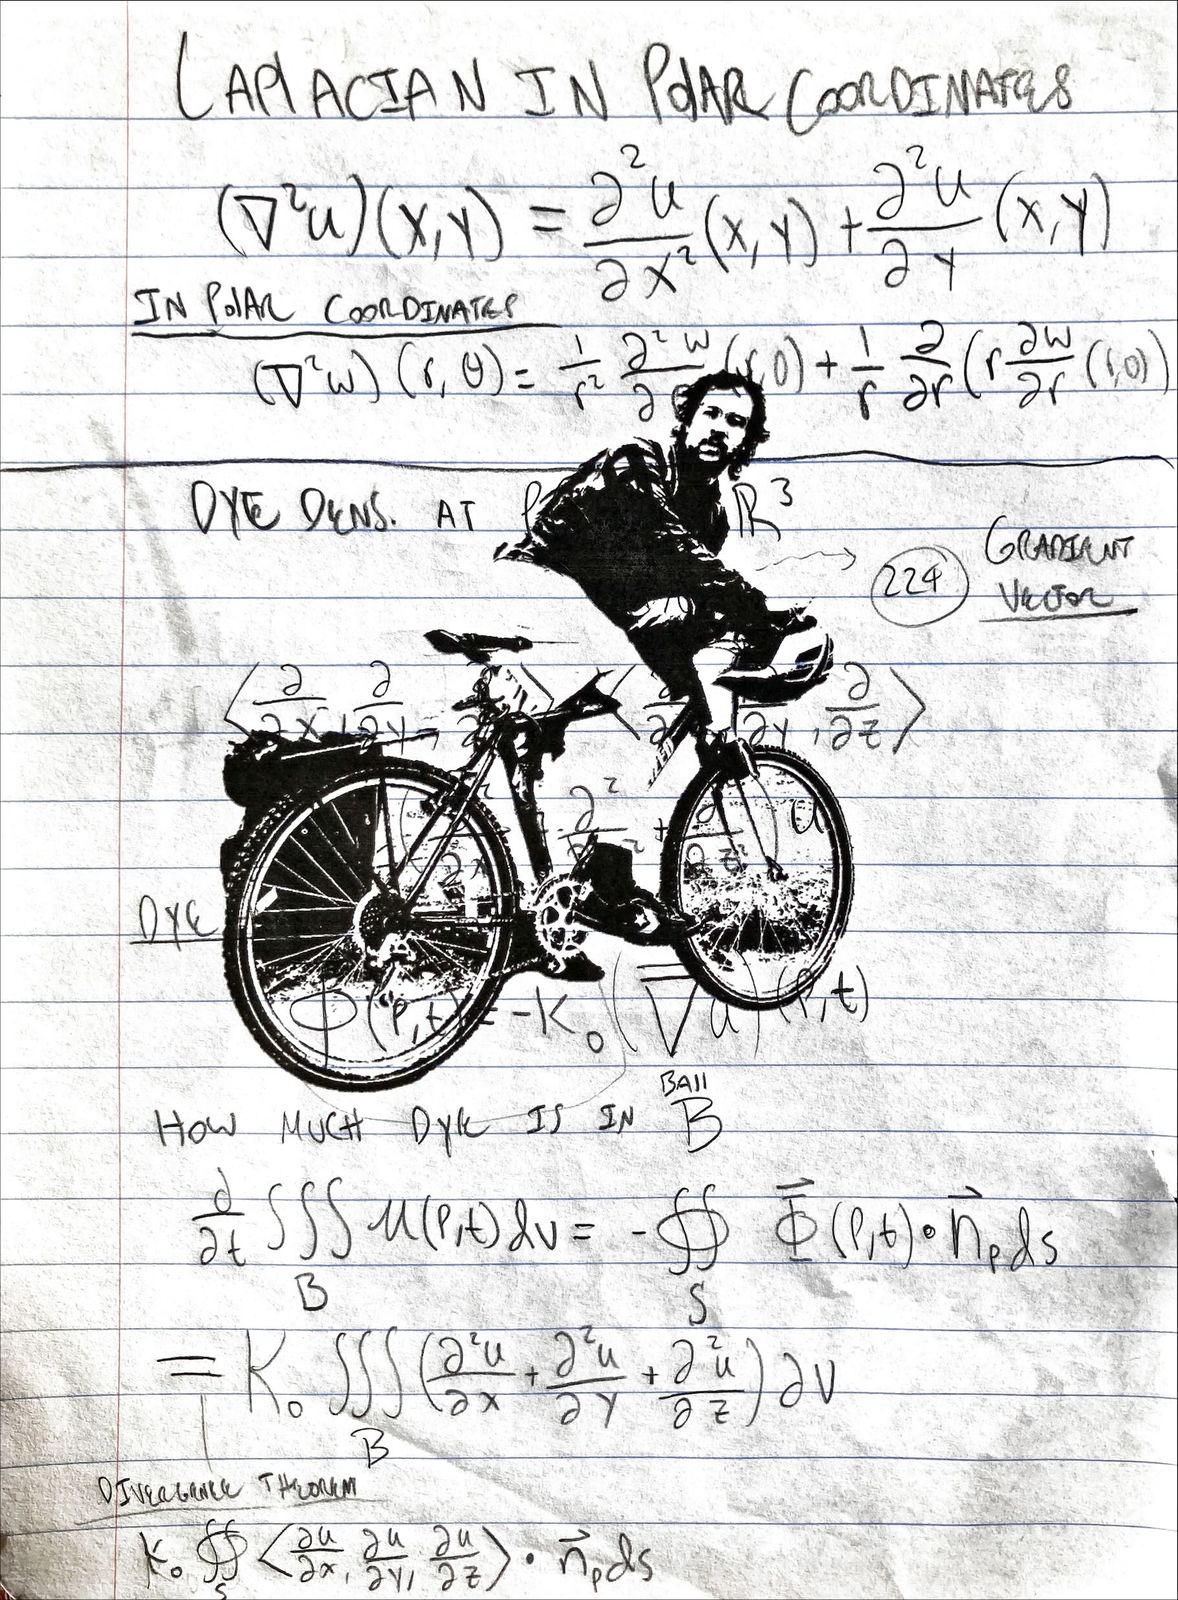 LAPLACIAN IN POLAR COORDINATES
(∇²u)(x,y) = ∂²u/∂x² (x,y) + ∂²u/∂y (x,y)
IN POLAR COORDINATES
(∇²w)(r,θ) = 1/r² ∂²w/∂ (r,θ) + 1/r ∂/∂r (r ∂w/∂r (r,θ)
DYE DENS. AT P ℝ³
224 GRADIENT
VECTOR
⟨∂/∂x, ∂/∂y, ∂ ⟨∂ ∂y, ∂/∂z⟩
∂x ∂² + ∂ z² u
DYE
Φ(P,t) = -K₀(∇u)(P,t)
BALL
HOW MUCH DYE IS IN B
∂/∂t ∫∫∫ u(P,t) dv = - ∯ Φ⃗(P,t)•n⃗ₚds
B S
= K₀ ∫∫∫ (∂²u/∂x + ∂²u/∂y + ∂²u/∂z) ∂V
B
DIVERGENCE THEOREM
K₀ ∯ ⟨∂u/∂x, ∂u/∂y, ∂u/∂z⟩ • n⃗ₚds
S